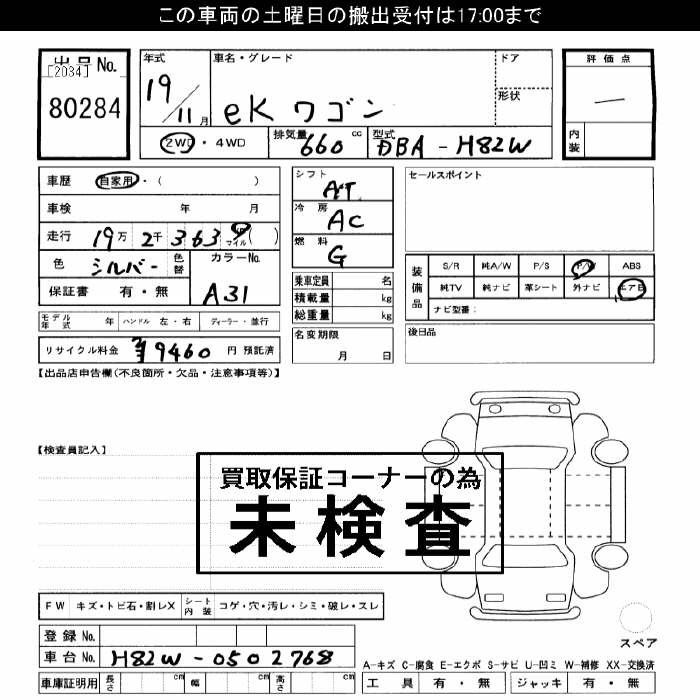 この車両の土曜日の搬出受付は17:00まで
出品No. [2034] 80284
年式 19/11月
車名・グレード eK ワゴン
ドア
形状
評価点 —
内装
2WD・4WD 排気量 660 cc 型式 DBA-H82W
車歴 自家用・( )
車検 年 月
走行 19万 2千 3 6 3 9 マイル( )
色 シルバー 色替 カラーNo. A31
保証書 有・無
シフト AT
冷房 AC
燃料 G
乗車定員 名
積載量 kg
総重量 kg
セールスポイント
装備品 S/R 純A/W P/S P/W ABS
純TV 純ナビ 革シート 外ナビ エアB
ナビ型番:
モデル年式 年 ハンドル 左・右 ディーラー・並行
名変期限 月 日
後日品
リサイクル料金 ¥9460 円 預託済
【出品店申告欄(不良箇所・欠品・注意事項等)】
【検査員記入】
買取保証コーナーの為
未検査
FW キズ・トビ石・割レX シート内装 コゲ・穴・汚レ・シミ・破レ・スレ
登録No.
車台No. H82W-0502768
車庫証明用 長さ cm 幅 cm 高さ cm
スペア
A-キズ C-腐食 E-エクボ S-サビ U-凹ミ W-補修 XX-交換済
工具 有・無 ジャッキ 有・無